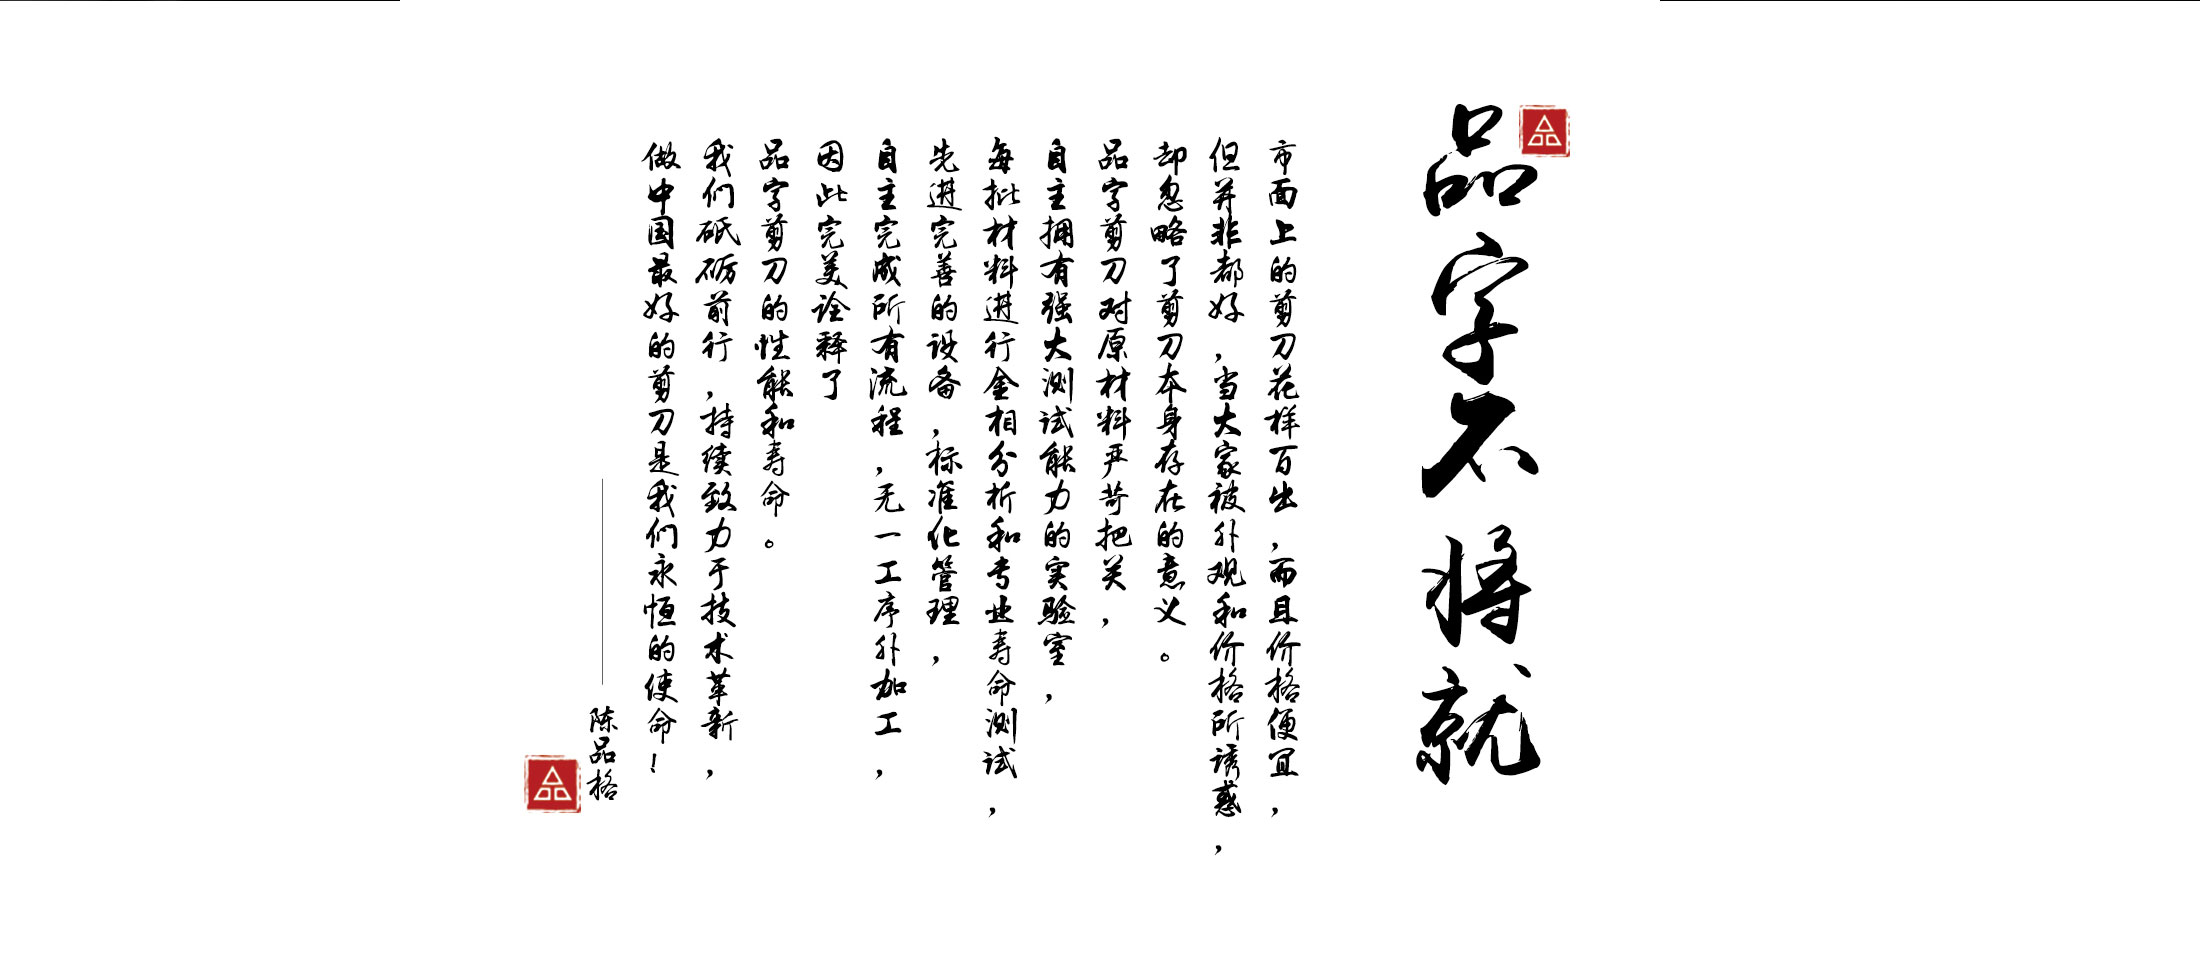 品字不将就
市面上的剪刀花样百出，而且价格便宜，
但并非都好，当大家被外观和价格所诱惑，
却忽略了剪刀本身存在的意义。
品字剪刀对原材料严苛把关，
自主拥有强大测试能力的实验室，
每批材料进行金相分析和专业寿命测试，
先进完善的设备，标准化管理，
自主完成所有流程，无一工序外加工，
因此完美诠释了
品字剪刀的性能和寿命。
我们砥砺前行，持续致力于技术革新，
做中国最好的剪刀是我们永恒的使命！
——陈品格